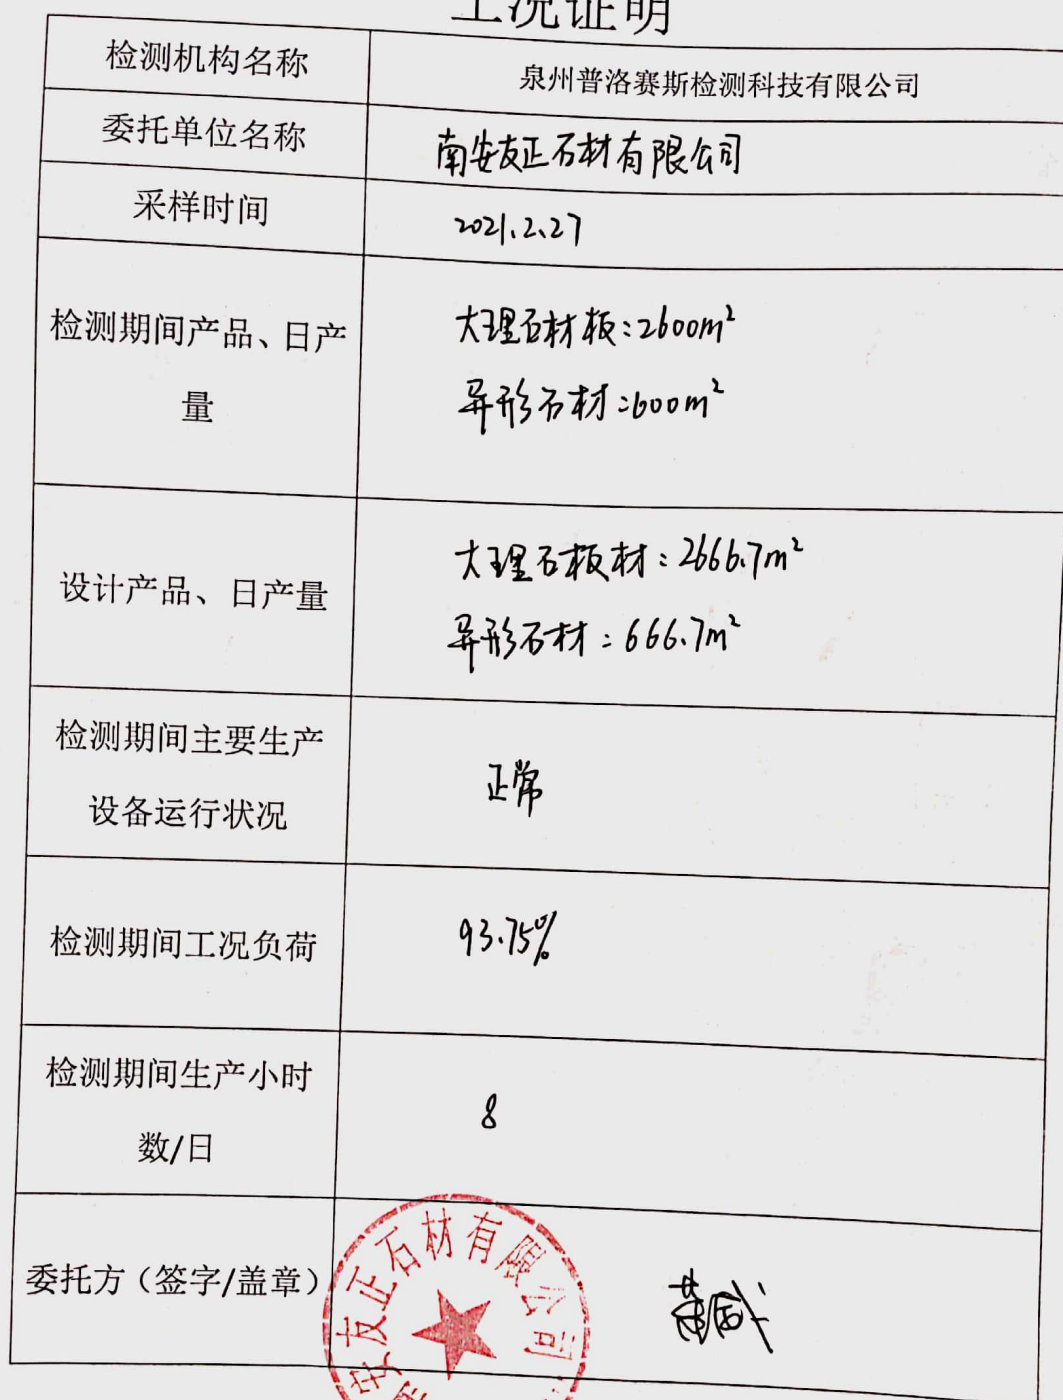 工况证明
检测机构名称
泉州普洛赛斯检测科技有限公司
委托单位名称
南安友正石材有限公司
采样时间
2021.2.27
检测期间产品、日产
量
大理石材板:2600m²
异形石材:600m²
设计产品、日产量
大理石板材:2666.7m²
异形石材:666.7m²
检测期间主要生产
设备运行状况
正常
检测期间工况负荷
93.75%
检测期间生产小时
数/日
8
委托方（签字/盖章）
安友正石材有限公司